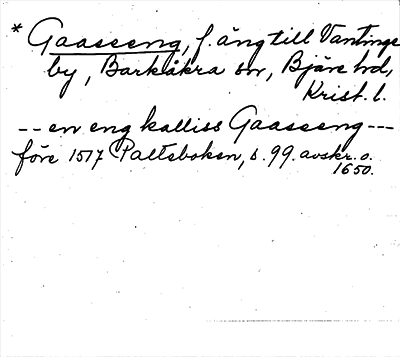 * Gaasseng, f. äng till Vantinge
by, Barkåkra sn, Bjäre hd,
Krist. l.
-- en eng kalliss Gaasseng ---
före 1517 Paltsboken, s. 99. avskr. o.
1650.